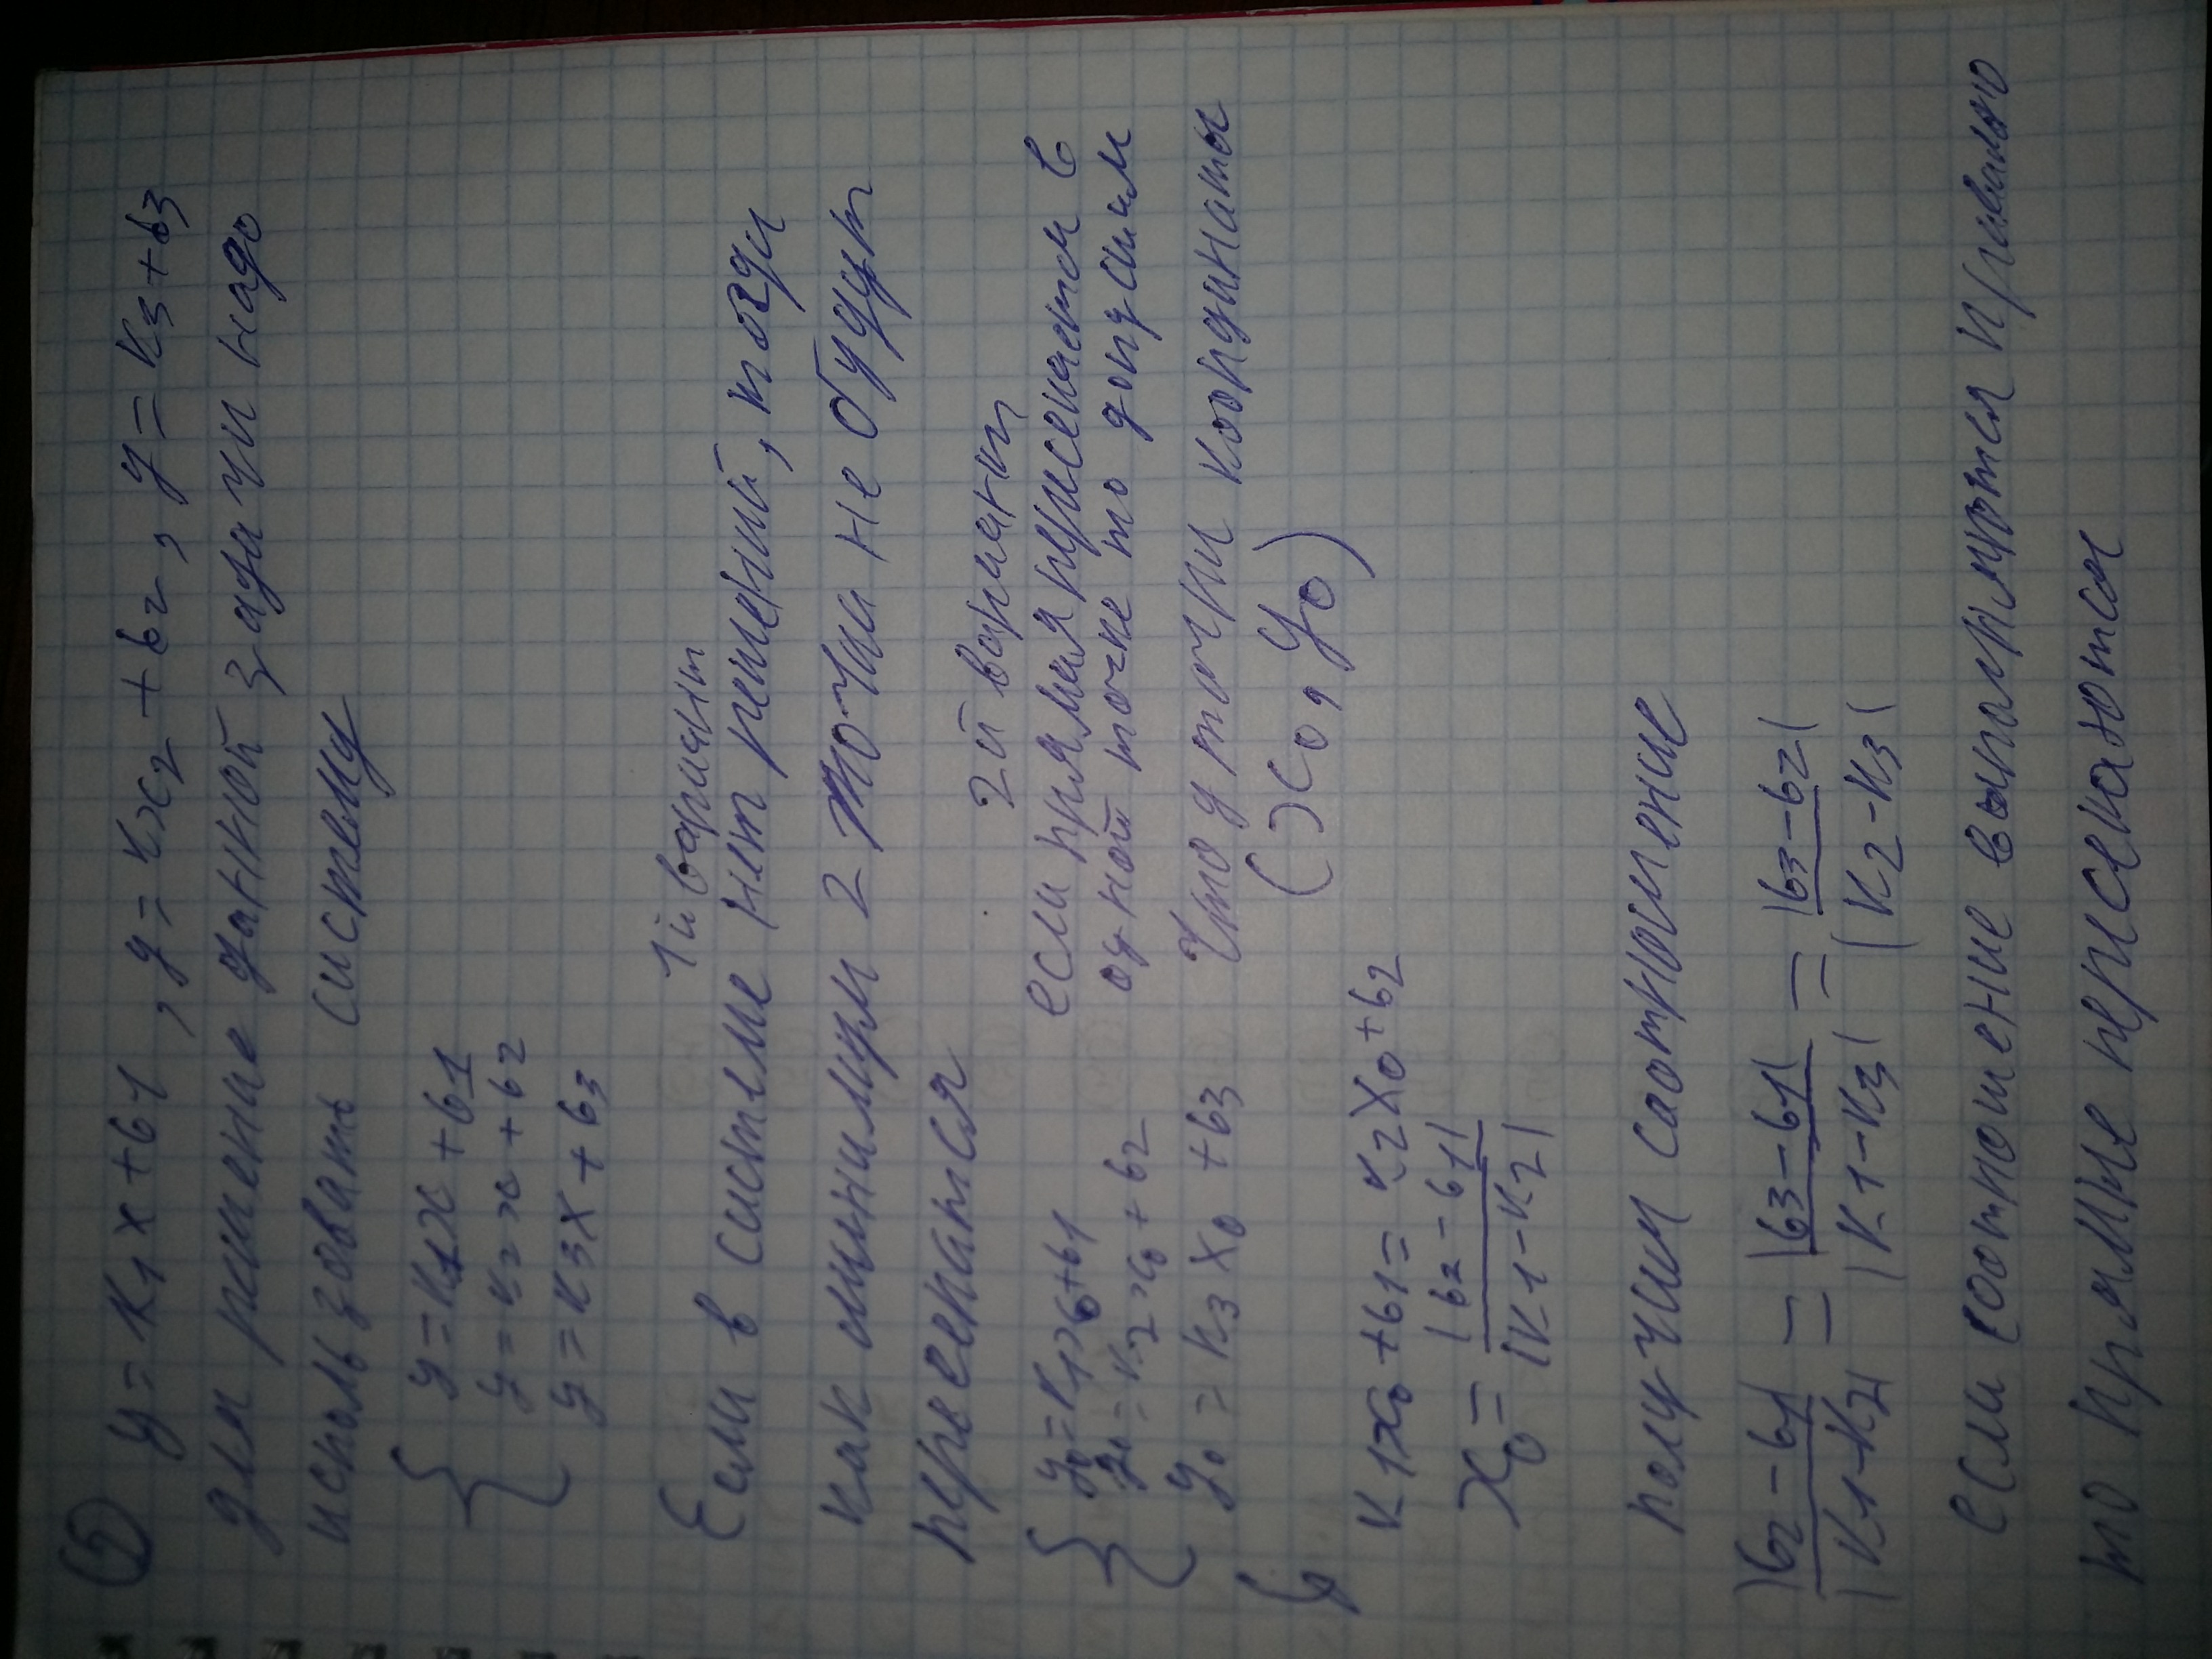 ② y = k₁x + b1, y = kx₂ + b₂, y = k₃ + b3
для решение данной задачи надо
использовать систему
{ y = k1x + b1
y = k2x + b2
y = k3x + b3
1й вариант
Если в системе нет решений, тогда
как минимум 2 точки не будут
пересекатся
2й вариант
{ y₀ = k1x₀ + b1
y₀ = k2x₀ + b2
y₀ = k3x₀ + b3
если прямая пересекается в
одной точке то допустим
что у точки координаты
(x₀, y₀)
k1x₀ + b1 = k2x₀ + b2
x₀ = |b2 - b1| / |k1 - k2|
получим соотношение
|b2 - b1| / |k1 - k2| = |b3 - b1| / |k1 - k3| = |b3 - b2| / |k2 - k3|
если соотношение выполняются правильно
то прямые пересекаются